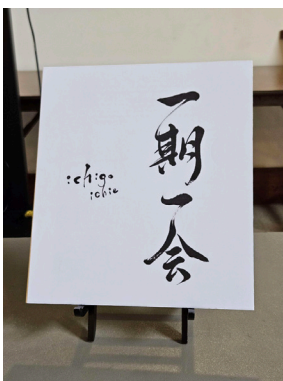 一期一会
ichigo
ichie